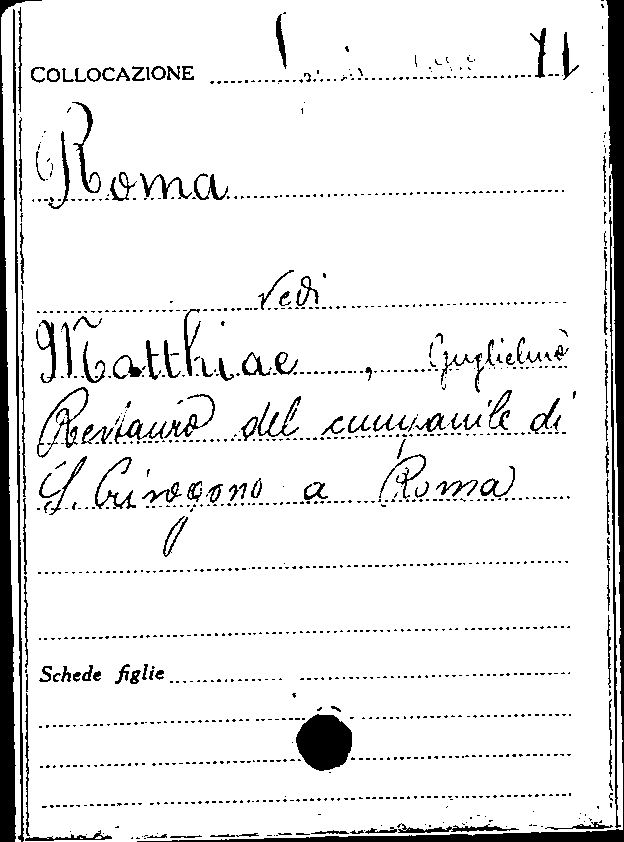 COLLOCAZIONE
Roma
vedi
Matthiae, Guglielmo
Restauro del campanile di
S. Crisogono a Roma
Schede figlie